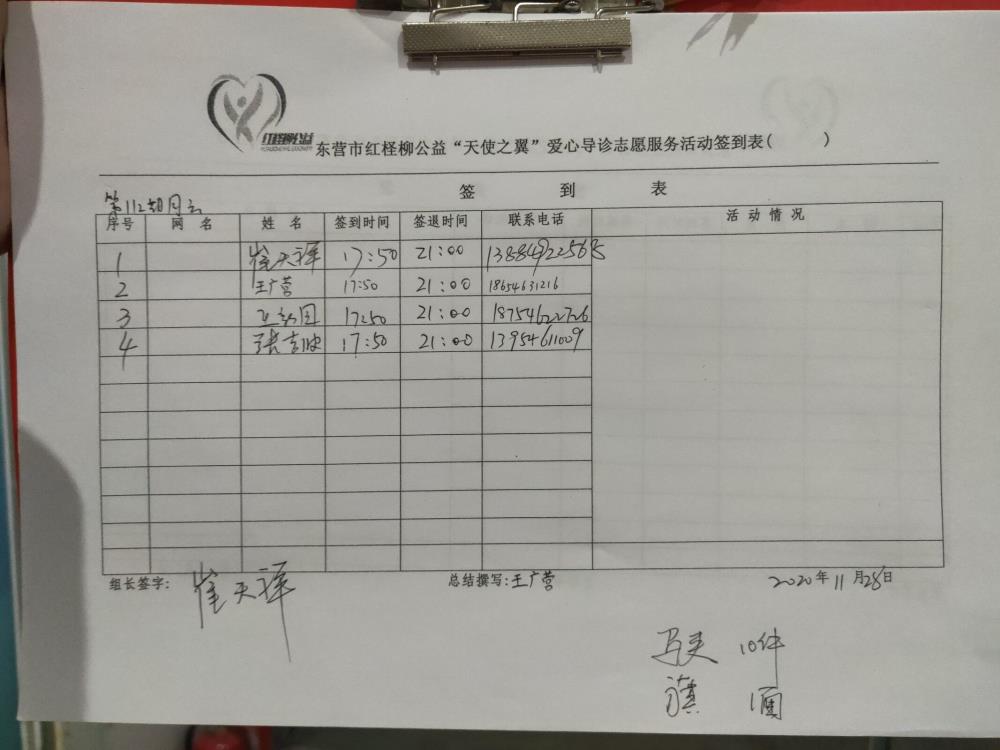 红柽柳公益
东营市红柽柳公益“天使之翼”爱心导诊志愿服务活动签到表( )
签 到 表
第112期
序号 网 名 姓 名 签到时间 签退时间 联系电话 活 动 情 况
1 崔天祥 17:50 21:00
2 王广营 17:50 21:00 18654631216
3 17:50 21:00 18754622726
4 17:50 21:00 13954611009
组长签字: 崔天祥 总结撰写:王广营 2020年11月28日
马夹 10件
旗 1面